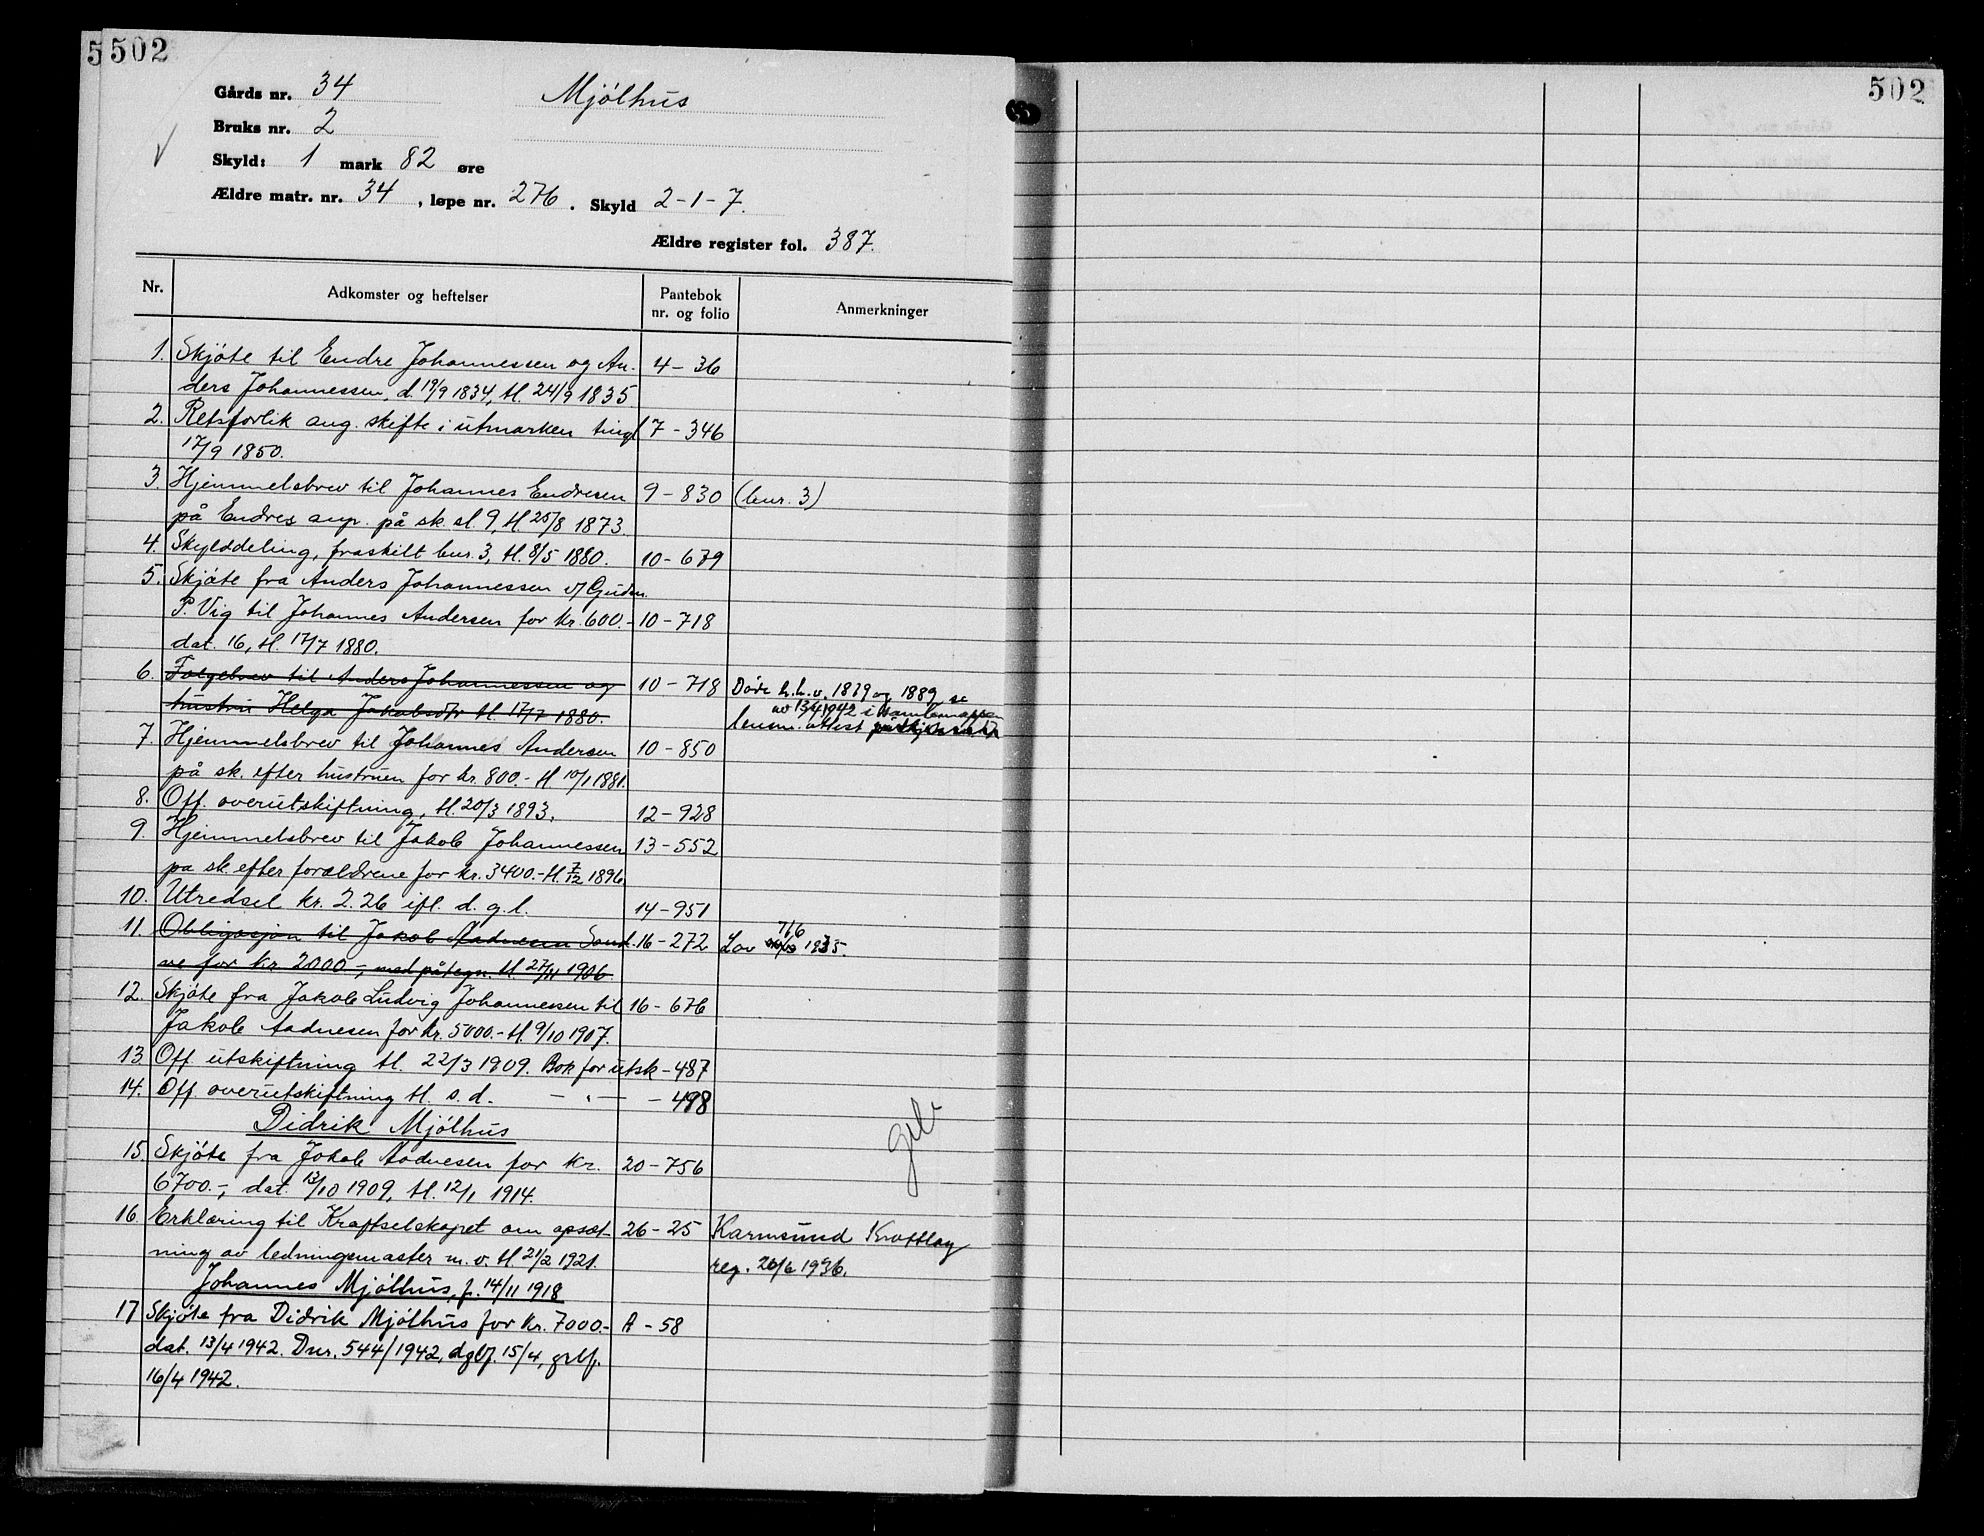 5502
Gårds nr. 34 Mjølhus
Bruks nr. 2
Skyld: 1 mark 82 øre
Ældre matr. nr. 34, løpe nr. 276. Skyld 2-1-7.
Ældre register fol. 387.
Nr. Adkomster og heftelser Pantebok nr. og folio Anmerkninger
1. Skjøte til Endre Johannessen og An- 4-36
ders Johannessen, d. 19/9 1834, tl. 24/9 1835
2. Retsforlik ang. skifte i utmarken tingl 7-346
17/9 1850.
3. Hjemmelsbrev til Johannes Endresen 9-830 (bnr. 3)
på Endres anp. på sk. sl. 9, tl. 25/8 1873.
4. Skylddeling, fraskilt bnr. 3, tl. 8/5 1880. 10-679
5. Skjøte fra Anders Johannessen v/ Gudm.
P. Vig til Johannes Andersen for kr. 600.- 10-718
dat. 16, tl. 17/7 1880.
6. Følgebrev til Anders Johannessen og 10-718 Døde h.h.v. 1879 og 1889, se
hustru Helga Jakobsdtr tl. 17/7 1880. av 13/4 1942 i
lensm. attest
7. Hjemmelsbrev til Johannes Andersen 10-850
på sk. efter hustruen for kr. 800.- tl 10/1 1881.
8. Off. overutskiftning, tl. 20/3 1893. 12-928
9. Hjemmelsbrev til Jakob Johannessen 13-552
pa sk. efter forældrene for kr. 3400.- tl. 7/12 1896.
10. Utredsel kr. 2.26 ifl. d. g. l. 14-951
11. Obligasjon til Jakob Aadnesen Sand- 16-272 Lov 7/6 1935.
ve for kr 2000.-, med påtegn. tl 27/11 1906.
12. Skjøte fra Jakob Ludvig Johannessen til 16-676
Jakob Aadnesen for kr. 5000.- tl. 9/10 1907.
13. Off. utskiftning tl. 22/3 1909. Bok for utsk - 487
14. Off. overutskiftning tl. s. d. — " — - 498
Didrik Mjølhus
15. Skjøte fra Jakob Aadnesen for kr. 20-756
6700.-, dat. 13/10 1909, tl. 12/1 1914.
16. Erklæring til Kraftselskapet om opsæt- 26-25 Karmsund Kraftlag
ning av ledningsmaster m. v. tl 21/2 1921. reg. 20/6 1936.
Johannes Mjølhus, f. 14/11 1918
17 Skjøte fra Didrik Mjølhus for kr. 7000.- A-58
dat. 13/4 1942. Dnr. 544/1942, dgbf. 15/4, grbf.
16/4 1942.
502